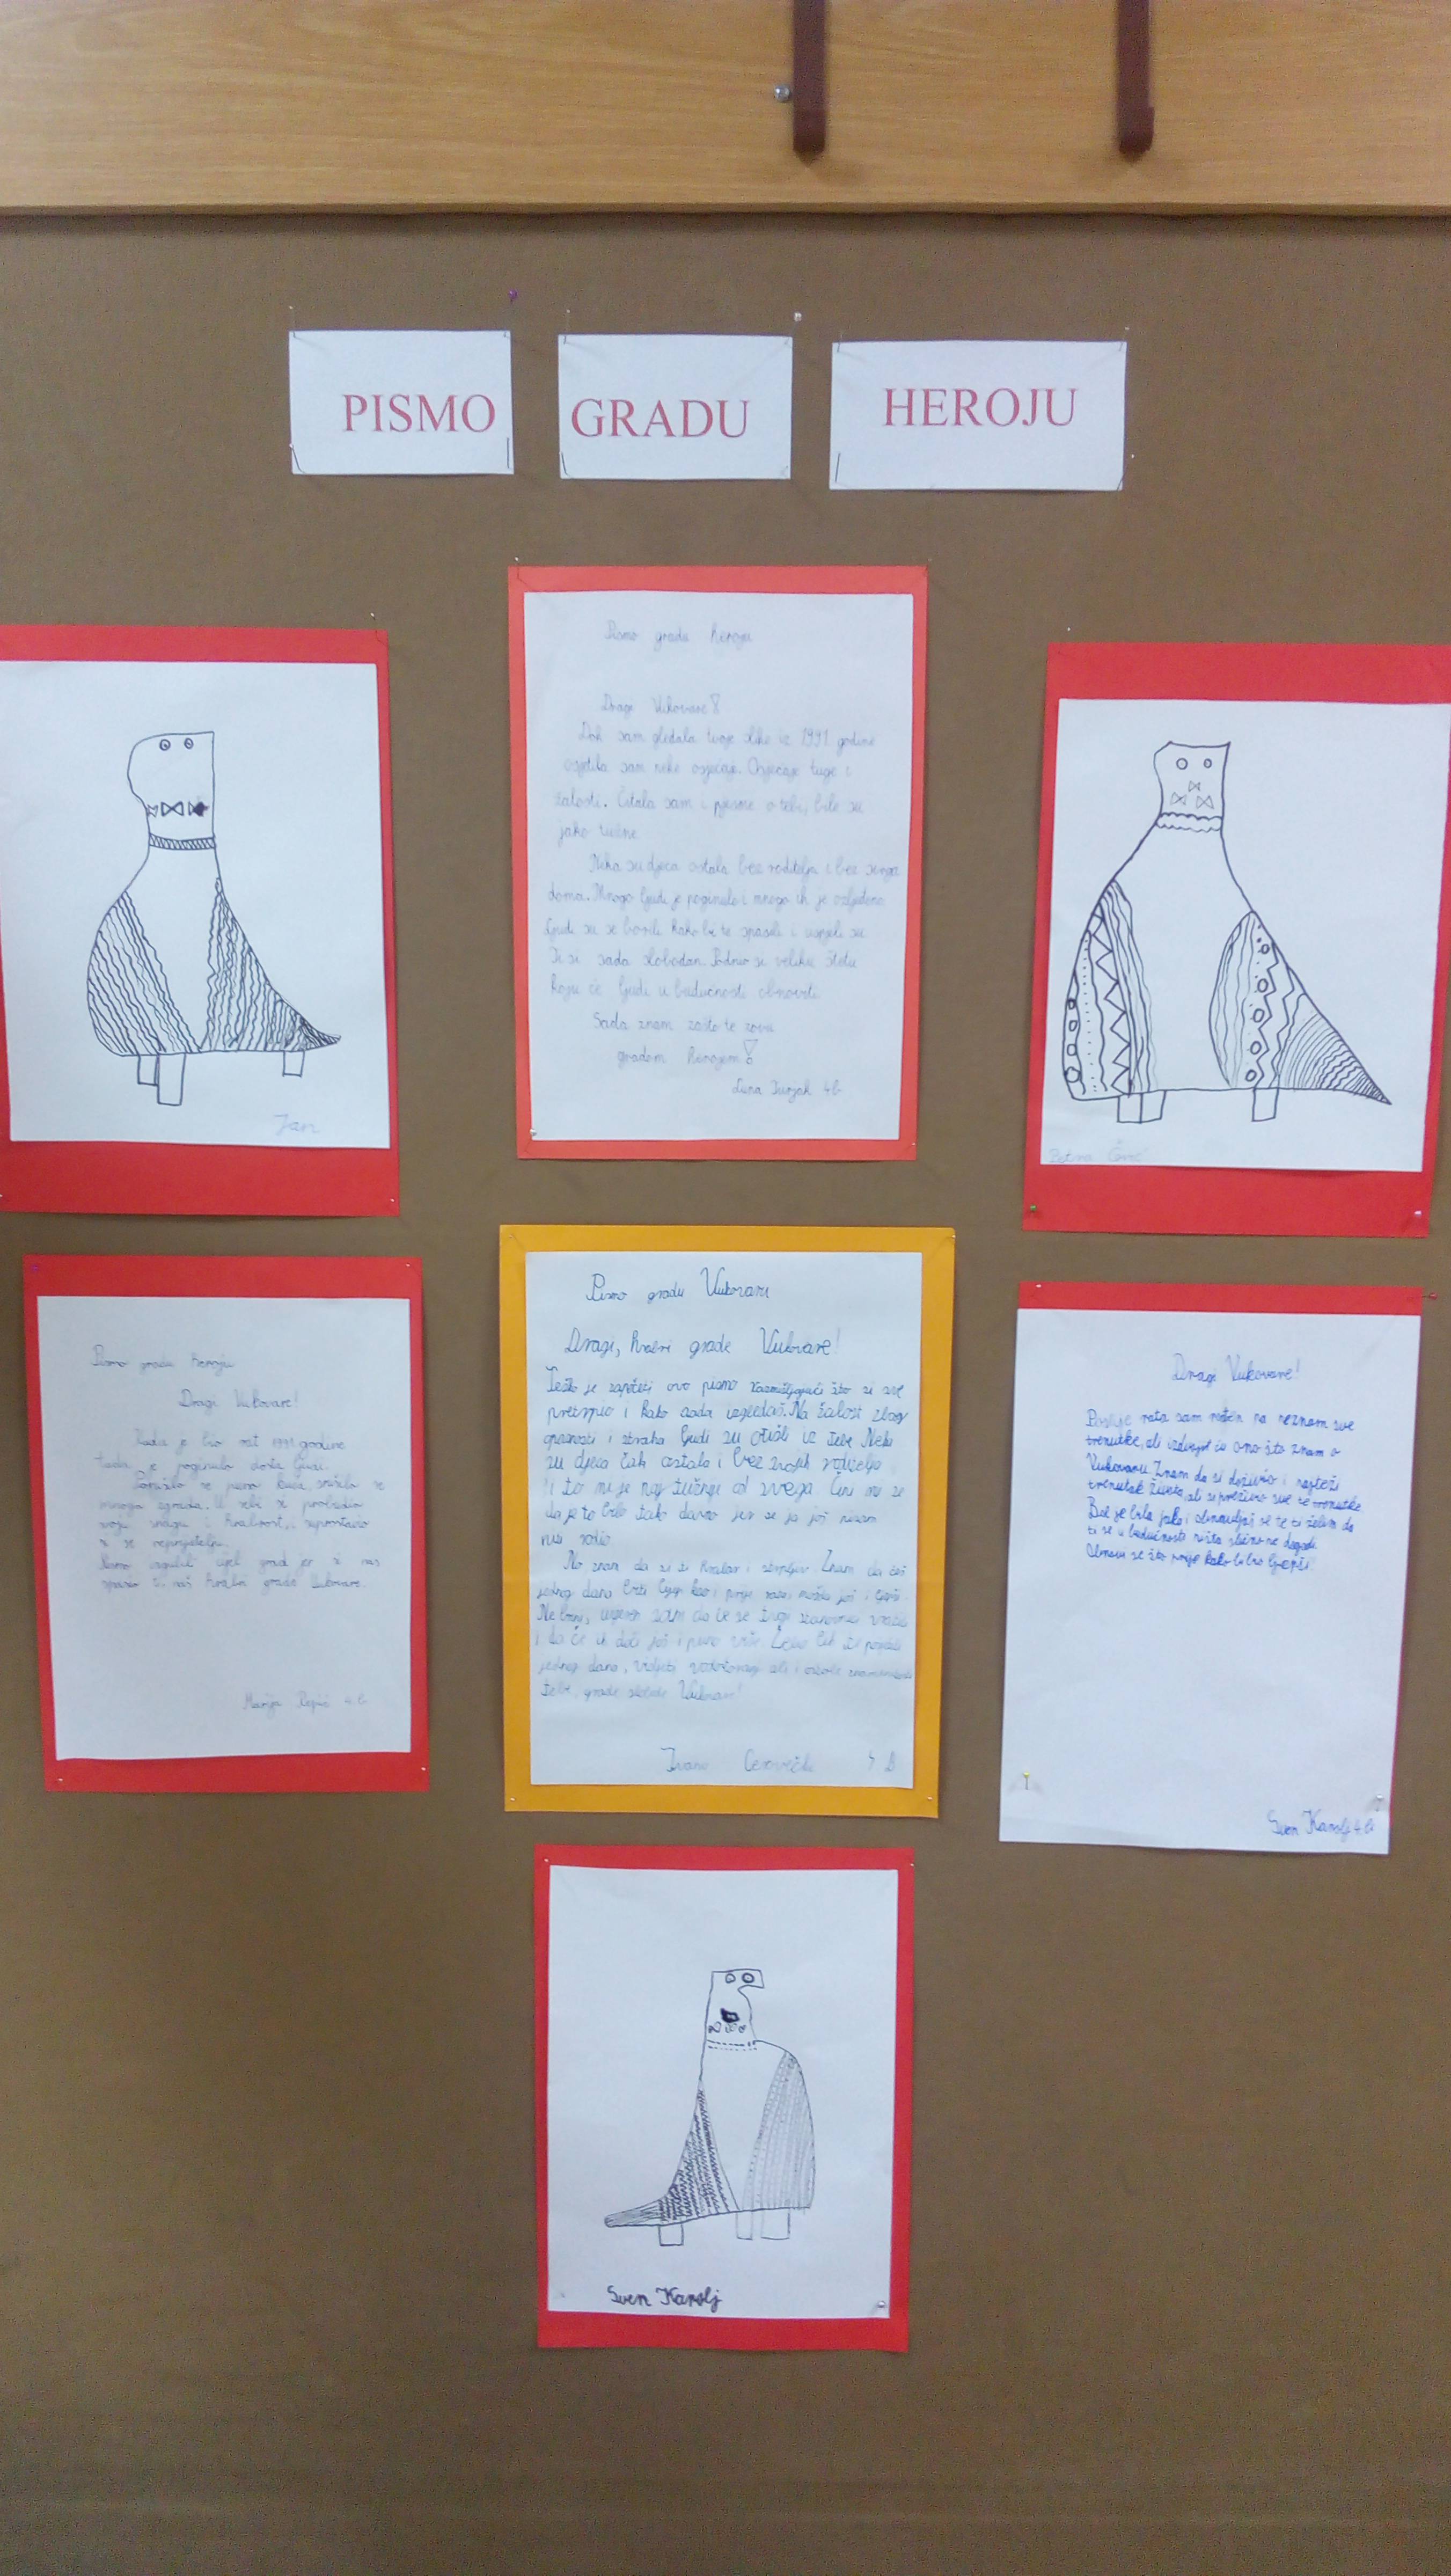 PISMO GRADU HEROJU
Jan
Pismo gradu heroju
Dragi Vukovare!
Dok sam gledala tvoje slike iz 1991 godine
osjetila sam neke osjećaje. Osjećaje tuge i
žalosti. Čitala sam i pjesme o tebi, bile su
jako tužne.
Neka su djeca ostala bez roditelja i bez svoga
doma. Mnogo ljudi je poginulo i mnogo ih je ozljeđeno
Ljudi su se borili kako bi te spasili i uspjeli su
Ti si sada slobodan. Podnio si veliku štetu
koju će ljudi u budućnosti obnoviti.
Sada znam zašto te zovu
gradom herojem!
Luna Turjak 4.b
Petra
Pismo gradu heroju
Dragi Vukovare!
Kada je bio rat 1991 godine
tada je poginulo dosta ljudi.
se puno kuća, srušilo se
mnogo zgrada. U tebi se probudila
tvoja snaga i hrabrost,
si se neprijatelju.
cijeli grad jer si nas
spasio ti, naš hrabri grade Vukovare.
Marija 4.b
Pismo gradu Vukovaru
Dragi, hrabri grade Vukovare!
Teško je započeti ovo pismo razmišljajući što si sve
pretrpio i kako sada izgledaš. Na žalost zbog
opasnosti i straha ljudi su otišli iz tebe. Neka
su djeca čak ostala i bez svojih roditelja
i to mi je naj tužnije od svega. Čini mi se
da je to bilo tako davno jer se ja još nisam
ni rodio.
No znam da si ti hrabar i strpljiv. Znam da ćeš
jednog dana biti lijep kao i prije rata, možda još i ljepši.
Ne brini, uvjeren sam da će se tvoji stanovnici vratiti
i da će ih doći još i puno više. Želio bih te posjetiti
jednog dana, vidjeti vodotoranj ali i ostale znamenitosti
tebe, grade slobode Vukovare!
4.b
Dragi Vukovare!
Poslije rata sam rođen pa neznam sve
trenutke, ali izdvojit ću ono što znam o
Vukovaru. Znam da si doživio i najteži
trenutak života, ali si preživio sve te trenutke.
Bol je bila jaka i obnavljaš se te ti želim da
ti se u budućnosti ništa slično ne dogodi.
Obnovi se što prije kako bi bio ljepši!
Sven Karolj 4.b
Sven Karolj